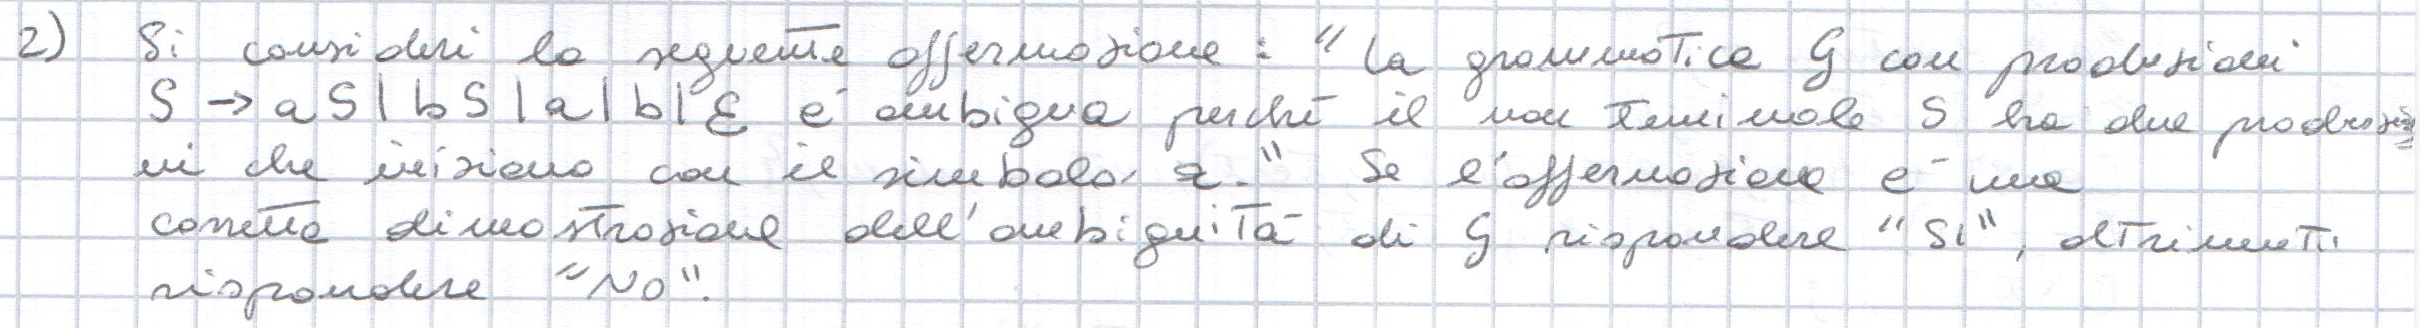 2) Si consideri la seguente affermazione: "La grammatica G con produzioni
S → aS | bS | a | b | ε è ambigua perché il non terminale S ha due produzio
ni che iniziano con il simbolo a." Se l'affermazione è una
corretta dimostrazione dell'ambiguità di G rispondere "SI", altrimenti
rispondere "NO".